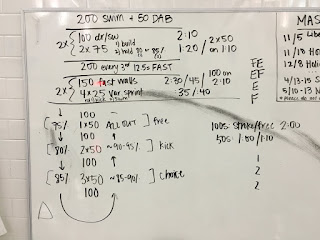 200 swim + 50 DAB
2x 100 dr/sw 2:10
2x 75 1) build 1:20 / 2x50
2) hold 90 on 1:10
200 every 3rd 12.5s FAST
2x 150 fast walls 2:30/45 100 on 2:10
4x25 var sprint :35/40
FE
EF
E
F
100 -
95% 1x50 ALL OUT ] Free
100
80% 2x50 ~90-95% ] kick
100
85% 3x50 ~85-90% ] choice
100
100s: stroke/free 2:00
50s: 1:50/1:10
1
2
2
MAS
11/5
11/6
12/8 Holi
4/13-15
5/10-13 N